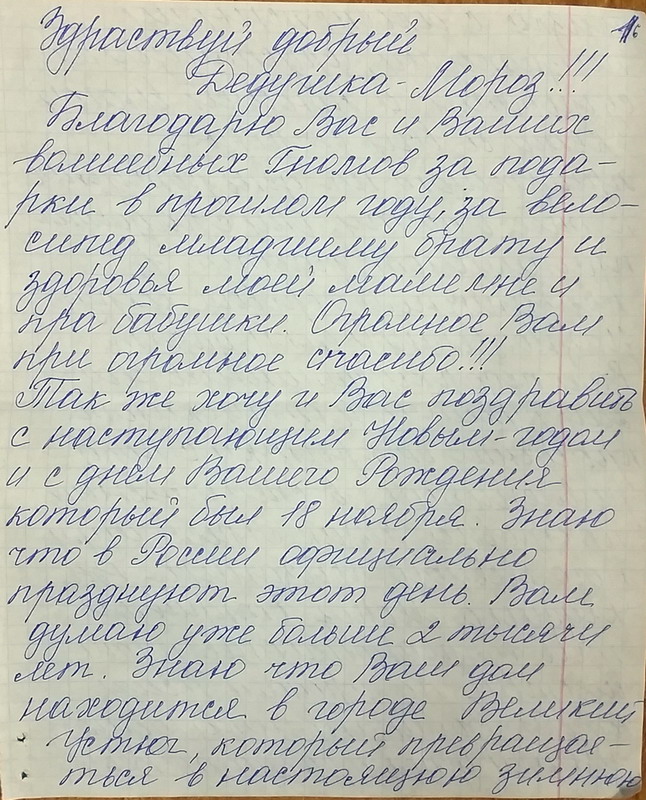 Здраствуй добрый
Дедушка-Мороз!!!
Благодарю Вас и Ваших
волшебных Гномов за пода-
рки в прошлом году, за вело-
сипед младшему брату и
здоровья моей мамеине и
пра бабушки. Огромное Вам
при огромное спасибо!!!
Так же хочу и Вас поздравить
с наступающим Новым-годом
и с днем Вашего Рождения
который был 18 ноября. Знаю
что в России официально
празднуют этот день. Вам
думаю уже больше 2 тысячи
лет. Знаю что Ваш дом
находится в городе Великий
Устюг, который превращае-
ться в настоящюю зимнюю